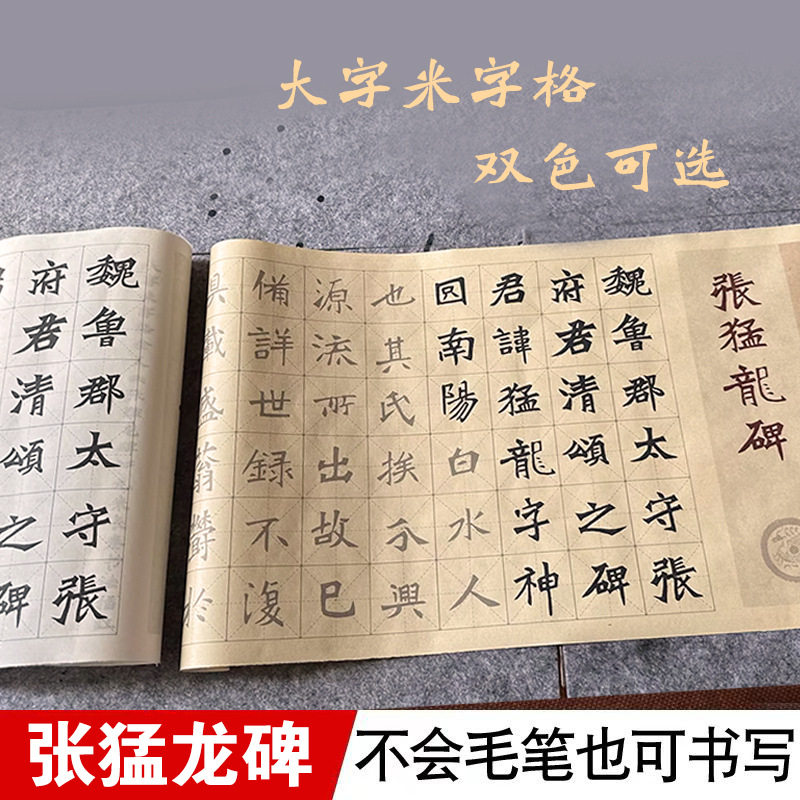 大字米字格
双色可选
張猛龍碑
魏魯郡太守張
府君清頌之碑
君諱猛龍字神
囙南陽白水人
也其氏族分興
源流所出故巳
備詳世録不復
具載盛蓊欝於
魏魯郡太守張
府君清頌之碑
张猛龙碑
不会毛笔也可书写